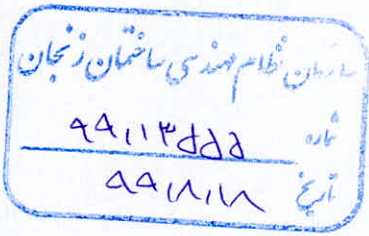 سازمان نظام مهندسی ساختمان زنجان
شماره ۹۹,۱۳۵۵۵
تاریخ ۹۹,۸,۱۸